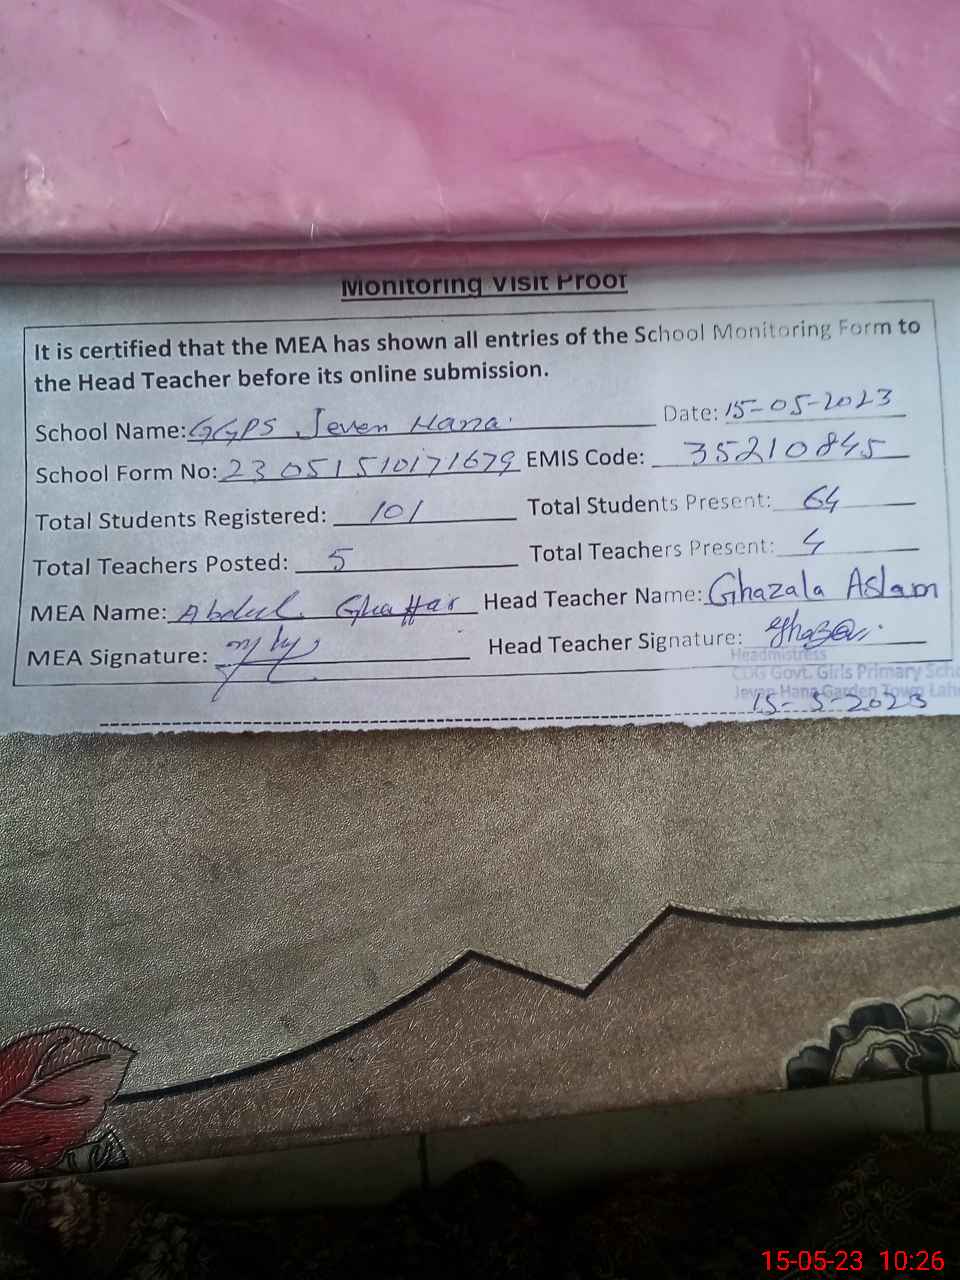 Monitoring Visit Proof
It is certified that the MEA has shown all entries of the School Monitoring Form to
the Head Teacher before its online submission.
School Name: GGPS Jeven Hana. Date: 15-05-2023
School Form No: 23051510171679 EMIS Code: 35210845
Total Students Registered: 101 Total Students Present: 64
Total Teachers Posted: 5 Total Teachers Present: 4
MEA Name: Abdul Ghaffar Head Teacher Name: Ghazala Aslam
MEA Signature: Head Teacher Signature:
Headmistress
CDG Govt. Girls Primary Scho
Jevan Hana Garden Town Lah
15-5-2023
15-05-23 10:26